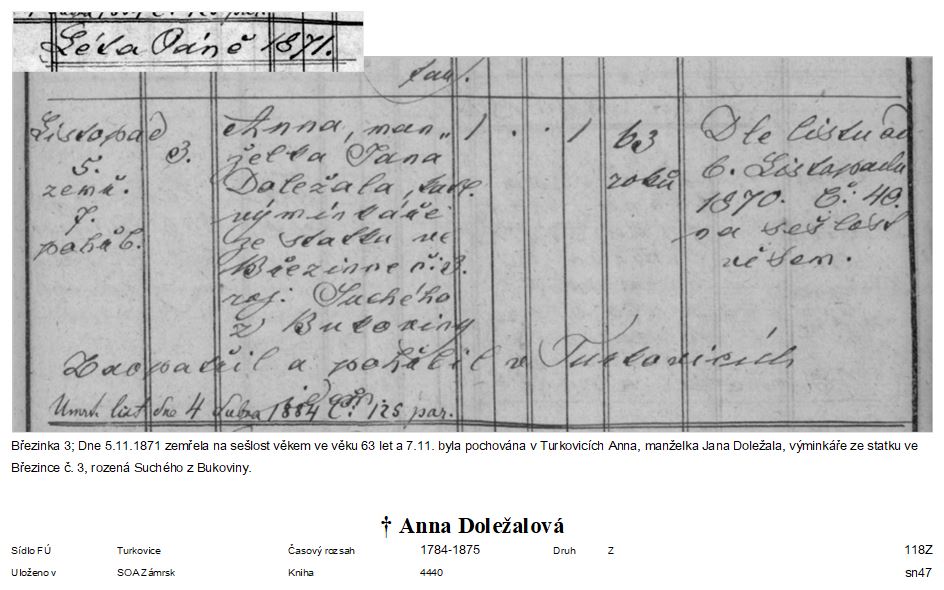 Léta Páně 1871.
Listopad
5.
zemř.
7.
pohřb.
3.
Anna, man„
želka Jana
Doležala,
výminkáře
ze statku ve
Březince č. 3.
roz. Suchého
z Bukoviny
1 . . 1
63
roků
Dle listu od
6. Listopadu
1870. Č: 40.
na sešlost
věkem.
Zaopatřil a pohřbil v Turkovicích
Úmrt. list dne 4 dubna 1884 č: 125 par.
Březinka 3; Dne 5.11.1871 zemřela na sešlost věkem ve věku 63 let a 7.11. byla pochována v Turkovicích Anna, manželka Jana Doležala, výminkáře ze statku ve
Březince č. 3, rozená Suchého z Bukoviny.
† Anna Doležalová
Sídlo FÚ Turkovice Časový rozsah 1784-1875 Druh Z 118Z
Uloženo v SOA Zámrsk Kniha 4440 sn47